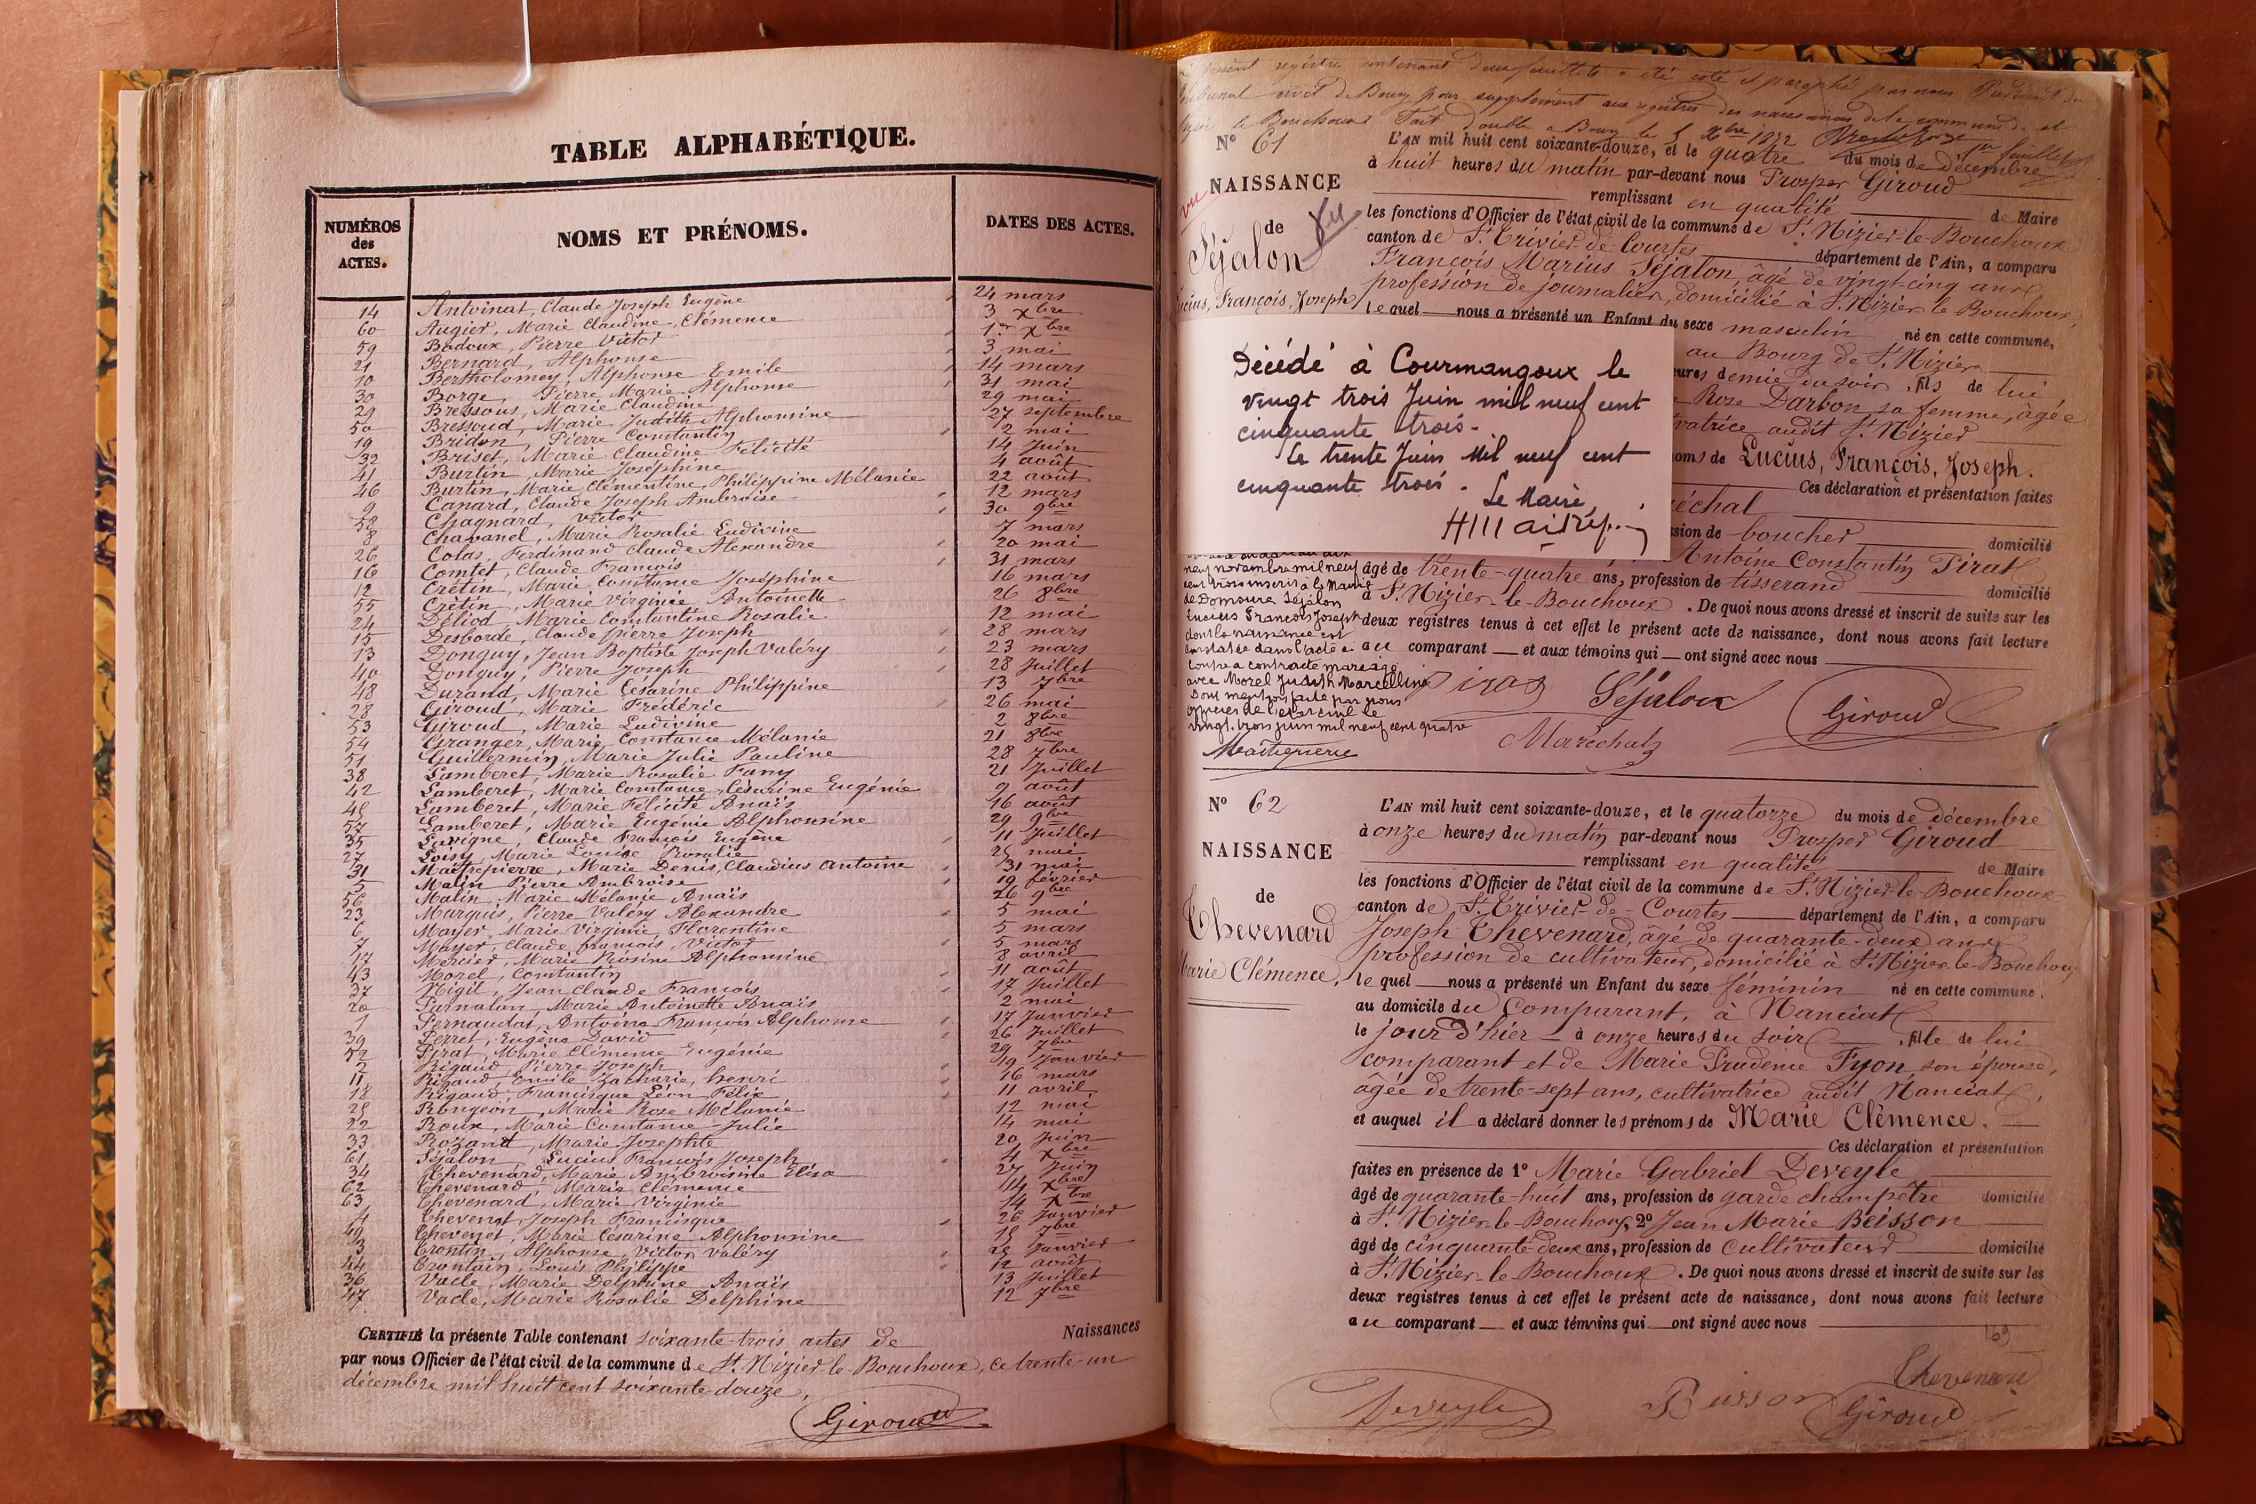 TABLE ALPHABÉTIQUE.
NUMÉROS des ACTES.
NOMS ET PRÉNOMS.
DATES DES ACTES.
14 Antoinat, Claude Joseph Eugène 24 mars
60 Augier, Marie Claudine Clémence 3 Xbre
59 Badoux, Pierre Victor 1er Xbre
21 Bernard, Alphonse 3 mai
10 Bertholomey, Alphonse Emile 14 mars
30 Borge, Pierre Marie Alphonse 31 mai
29 Bressous, Marie Claudine 29 mai
50 Bressoud, Marie Judith Alphonsine 27 septembre
19 Bridon, Pierre Constantin 2 mai
32 Briset, Marie Claudine Félicité 14 Juin
41 Burtin, Marie Joséphine 4 août
46 Burtin, Marie Clémentine Philippine Mélanie 22 août
9 Canard, Claude Joseph Ambroise 12 mars
58 Chagnard, Victor 30 9bre
8 Chavanel, Marie Rosalie Ludivine 7 mars
26 Colas, Ferdinand Claude Alexandre 20 mai
16 Comtet, Claude François 31 mars
12 Crétin, Marie Constance Joséphine 16 mars
55 Crétin, Marie Virginie Antoinette 26 8bre
24 Déliod, Marie Constantine Rosalie 12 mai
15 Desborde, Claude Pierre Joseph 28 mars
13 Donguy, Jean Baptiste Joseph Valéry 23 mars
40 Donguy, Pierre Joseph 28 Juillet
48 Durand, Marie Césarine Philippine 13 7bre
28 Giroud, Marie Frédéric 26 mai
53 Giroud, Marie Ludivine 2 8bre
54 Granger, Marie Constance Mélanie 21 8bre
51 Guillermin, Marie Julie Pauline 28 7bre
38 Lamberet, Marie Rosalie Fany 21 Juillet
42 Lamberet, Marie Constance Césarine Eugénie 9 août
45 Lamberet, Marie Félicité Anaïs 16 août
57 Lamberet, Marie Eugénie Alphonsine 29 9bre
35 Lavigne, Claude François Eugène 11 Juillet
27 Loisy, Marie Louise Rosalie 25 mai
31 Maîtrepierre, Marie Denis, Claudius Antoine 31 mai
5 Malin, Pierre Ambroise 19 février
56 Malin, Marie Mélanie Anaïs 26 9bre
23 Marquis, Pierre Valéry Alexandre 5 mai
6 Mayer, Marie Virginie Florentine 5 mars
7 Mayer, Claude François Victor 5 mars
17 Mercier, Marie Rosine Alphonsine 8 avril
43 Morel, Constantin 11 août
37 Nigil, Jean Claude François 17 Juillet
20 Parnalon, Marie Antoinette Anaïs 2 mai
1 Pernaudat, Antoine François Alphonse 17 Janvier
39 Perret, Eugène David 26 Juillet
52 Pirat, Marie Clémence Eugénie 29 7bre
2 Rigaud, Pierre Joseph 19 Janvier
11 Rigaud, Emile Zacharie, henri 16 mars
18 Rigaud, Francisque Léon Félix 11 avril
25 Rongeon, Marie Rose Mélanie 12 mai
22 Roux, Marie Constance Julie 4 mai
33 Rozand, Marie Josephte 20 Juin
61 Séjalon Lucius François Joseph 4 Xbre
34 Thevenard, Marie Ambroisine Elisa 27 Juin
62 Thevenard, Marie Clémence 14 Xbre
63 Thevenard, Marie Virginie 14 Xbre
4 Thevenet, Joseph Francisque 26 Janvier
49 Thevenet, Marie Césarine Alphonsine 18 7bre
3 Trontin, Alphonse Victor Valéry 25 Janvier
44 Trontain, Louis Philippe 12 août
36 Vacle, Marie Delphine Anaïs 13 Juillet
47 Vacle, Marie Rosalie Delphine 12 7bre
CERTIFIÉ la présente Table contenant soixante-trois actes de Naissances
par nous Officier de l'état civil de la commune de St. Nizier-le-Bouchoux, ce trente-un
décembre mil huit cent soixante-douze.
Giroud
présent registre contenant deux feuillets a été coté et paraphé par nous Président du
Tribunal civil de Bourg pour supplément aux registres des naissances de la commune de St
Nizier le Bouchoux Fait double à Bourg le 5 Xbre 1872
1er feuillet
N° 61
NAISSANCE
de
Séjalon
Lucius, François, Joseph
vu
L'AN mil huit cent soixante-douze, et le quatre du mois de décembre
à huit heures du matin par-devant nous Prosper Giroud
remplissant en qualité de Maire
les fonctions d'Officier de l'état civil de la commune de St. Nizier-le-Bouchoux
canton de St. Trivier-de-Courtes département de l'Ain, a comparu
François Marius Séjalon, âgé de vingt-cinq ans,
profession de journalier, domicilié à St. Nizier-le-Bouchoux,
lequel nous a présenté un Enfant du sexe masculin né en cette commune,
au Bourg de St. Nizier
heures demie du soir, fils de lui
Rose Darbon, sa femme, âgée
cultivatrice audit St. Nizier
noms de Lucius, François, Joseph.
Ces déclaration et présentation faites
Maréchal
profession de boucher domicilié
Antoine Constantin Pirat
Décédé à Courmangoux le
vingt trois Juin mil neuf cent
cinquante trois.
Le trente Juin Mil neuf cent
cinquante trois.
Le Maire
neuf novembre mil neuf
cent trois inscrit à la Mairie
de Domsure Séjalon
Lucius François Joseph
dont la naissance est
constatée dans l'acte ci
contre a contracté mariage
avec Morel Judith Marcelline
Dont mention faite par nous
officier de l'état civil le
vingt trois juin mil neuf cent quatre
Maîtrepierre
âgé de trente-quatre ans, profession de tisserand domicilié
à St. Nizier-le-Bouchoux. De quoi nous avons dressé et inscrit de suite sur les
deux registres tenus à cet effet le présent acte de naissance, dont nous avons fait lecture
au comparant et aux témoins qui ont signé avec nous
Pirat Séjalon Giroud
Maréchal
N° 62
NAISSANCE
de
Thevenard
Marie Clémence.
L'AN mil huit cent soixante-douze, et le quatorze du mois de décembre
à onze heures du matin par-devant nous Prosper Giroud
remplissant en qualité de Maire
les fonctions d'Officier de l'état civil de la commune de St. Nizier-le-Bouchoux
canton de St. Trivier-de-Courtes département de l'Ain, a comparu
Joseph Thevenard, âgé de quarante-deux ans,
profession de cultivateur, domicilié à St. Nizier-le-Bouchoux
lequel nous a présenté un Enfant du sexe féminin né en cette commune,
au domicile du Comparant, à Nanciat
le jour d'hier à onze heures du soir, fille de lui
comparant et de Marie Prudence Fyon, son épouse,
âgée de trente-sept ans, cultivatrice audit Nanciat,
et auquel il a déclaré donner les prénoms de Marie Clémence.
Ces déclaration et présentation
faites en présence de 1° Marie Gabriel Deveyle
âgé de quarante-huit ans, profession de garde champêtre domicilié
à St. Nizier-le-Bouchoux, 2° Jean Marie Beisson
âgé de cinquante-deux ans, profession de Cultivateur domicilié
à St. Nizier-le-Bouchoux. De quoi nous avons dressé et inscrit de suite sur les
deux registres tenus à cet effet le présent acte de naissance, dont nous avons fait lecture
au comparant et aux témoins qui ont signé avec nous
Thevenard
Deveyle Buisson Giroud